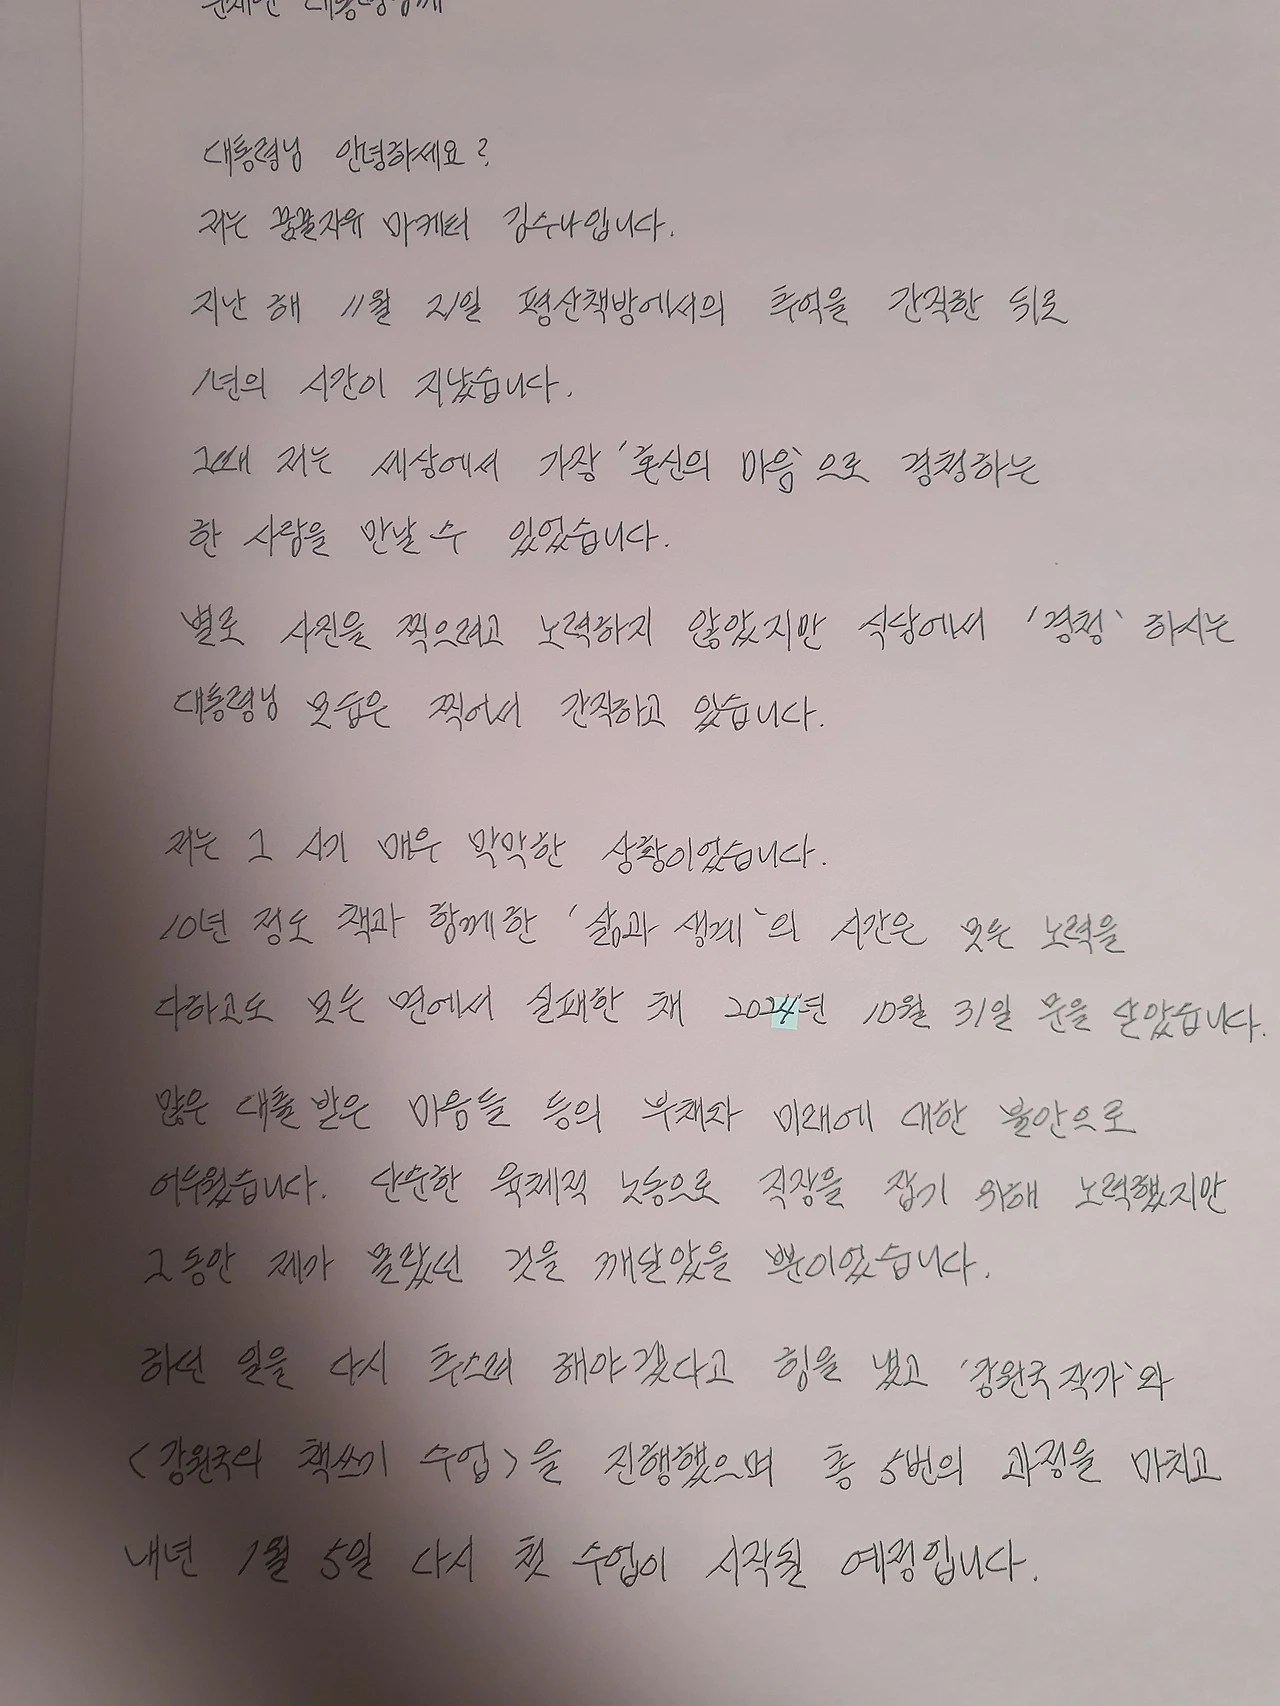 문재인 대통령님께
대통령님 안녕하세요?
저는 꿈꿀자유 마케터 김수나입니다.
지난 해 11월 21일 평산책방에서의 추억을 간직한 뒤로
1년의 시간이 지났습니다.
그때 저는 세상에서 가장 '혼신의 마음'으로 경청하는
한 사람을 만날 수 있었습니다.
별로 사진을 찍으려고 노력하지 않았지만 식당에서 '경청' 하시는
대통령님 모습은 찍어서 간직하고 있습니다.
저는 그 시기 매우 막막한 상황이었습니다.
10년 정도 책과 함께한 '삶과 생계'의 시간은 모든 노력을
다하고도 모든 면에서 실패한 채 2024년 10월 31일 문을 닫았습니다.
많은 대출 받은 마음들 등의 부채와 미래에 대한 불안으로
어두웠습니다. 단순한 육체적 노동으로 직장을 잡기 위해 노력했지만
그동안 제가 몰랐던 것을 깨달았을 뿐이었습니다.
하던 일을 다시 추스려 해야겠다고 힘을 냈고 '강원국 작가'와
<강원국의 책쓰기 수업>을 진행했으며 총 5번의 과정을 마치고
내년 1월 5일 다시 첫 수업이 시작될 예정입니다.